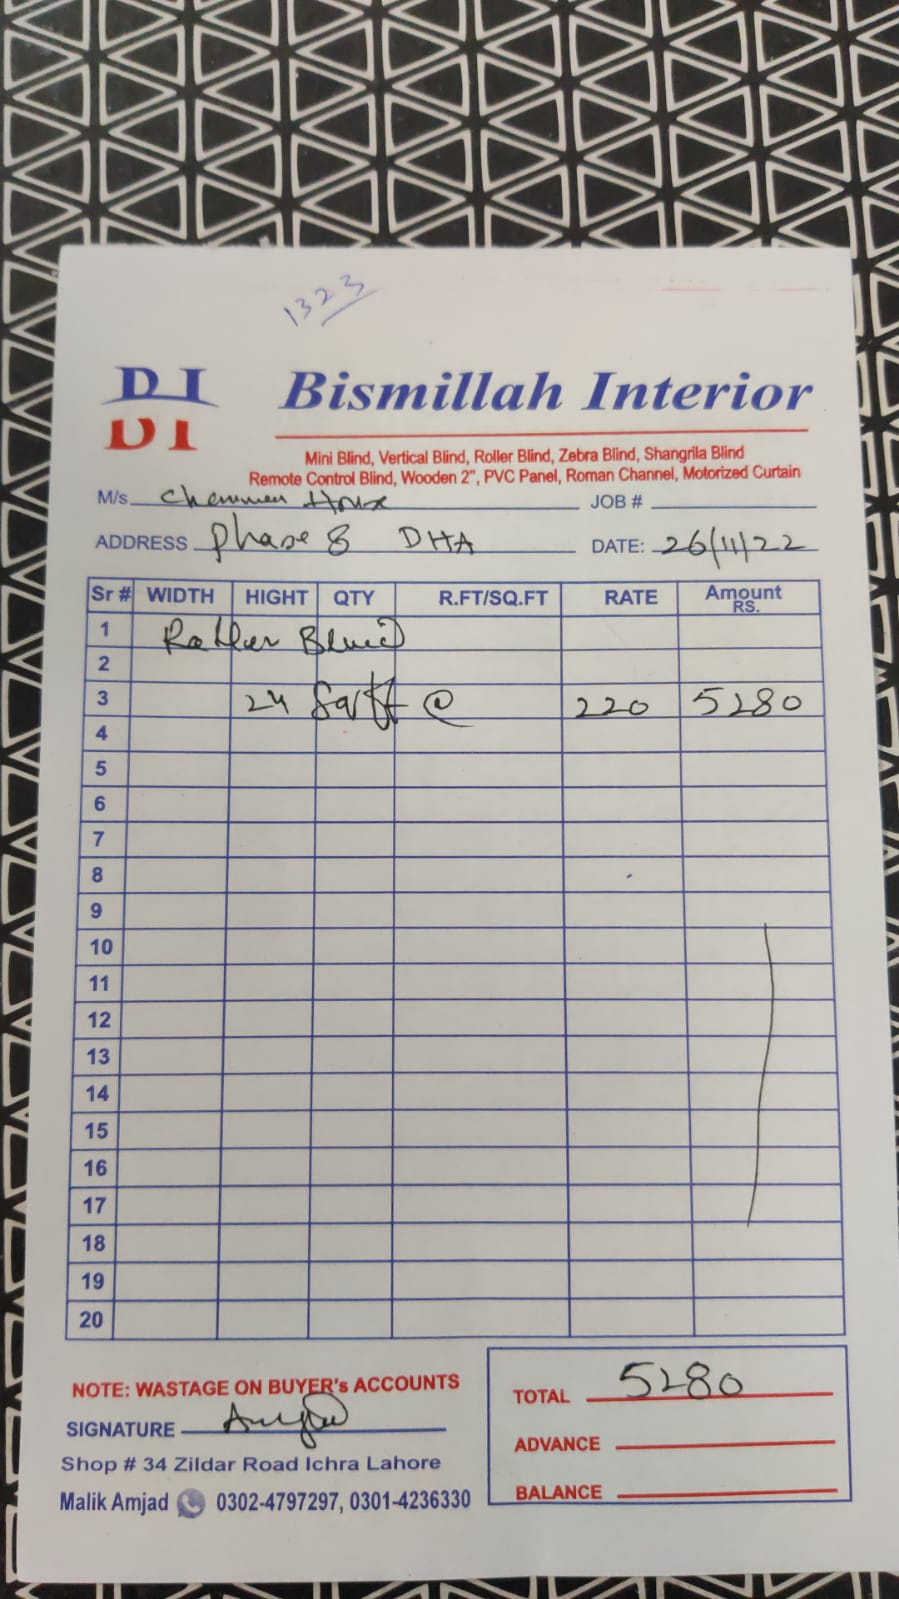 1323
DI
Bismillah Interior
Mini Blind, Vertical Blind, Roller Blind, Zebra Blind, Shangrila Blind
Remote Control Blind, Wooden 2", PVC Panel, Roman Channel, Motorized Curtain
M/s JOB #
ADDRESS Phase 8 DHA DATE: 26/11/22
Sr # WIDTH HIGHT QTY R.FT/SQ.FT RATE Amount RS.
1
2
3 24 Sqft @ 220 5280
4
5
6
7
8
9
10
11
12
13
14
15
16
17
18
19
20
NOTE: WASTAGE ON BUYER's ACCOUNTS
TOTAL 5280
SIGNATURE
ADVANCE
Shop # 34 Zildar Road Ichra Lahore
BALANCE
Malik Amjad 0302-4797297, 0301-4236330